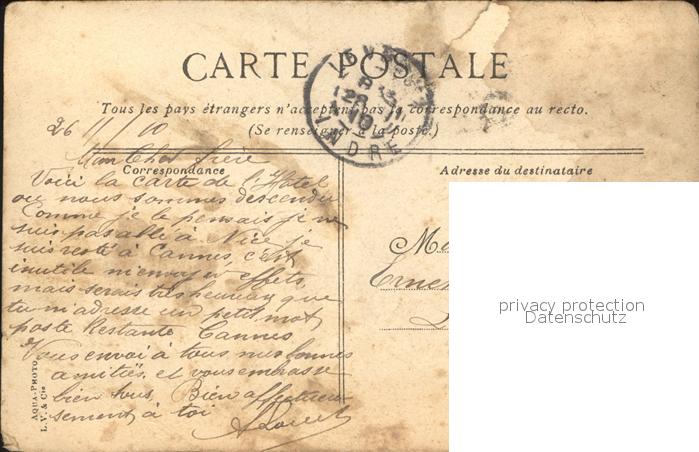 CARTE POSTALE
Tous les pays étrangers n'acceptent pas la correspondance au recto.
(Se renseigner à la poste.)
26/11/10
INDRE
Correspondance
Adresse du destinataire
Mon Cher frère
Voici la carte de l'Hotel
ou nous sommes descendu
Comme je le pensais je ne
suis pas allé à Nice je
suis resté à Cannes, c'est
inutile m'envoyer effets
mais serais très heureux que
tu m'adresse un petit mot
poste Restante Cannes
Vous envoi à tous nos bonnes
amitiés, et vous embrasse
bien tous, Bien affectueu-
sement à toi
AQUA-PHOTO
L.V. & Cie
privacy protection
Datenschutz